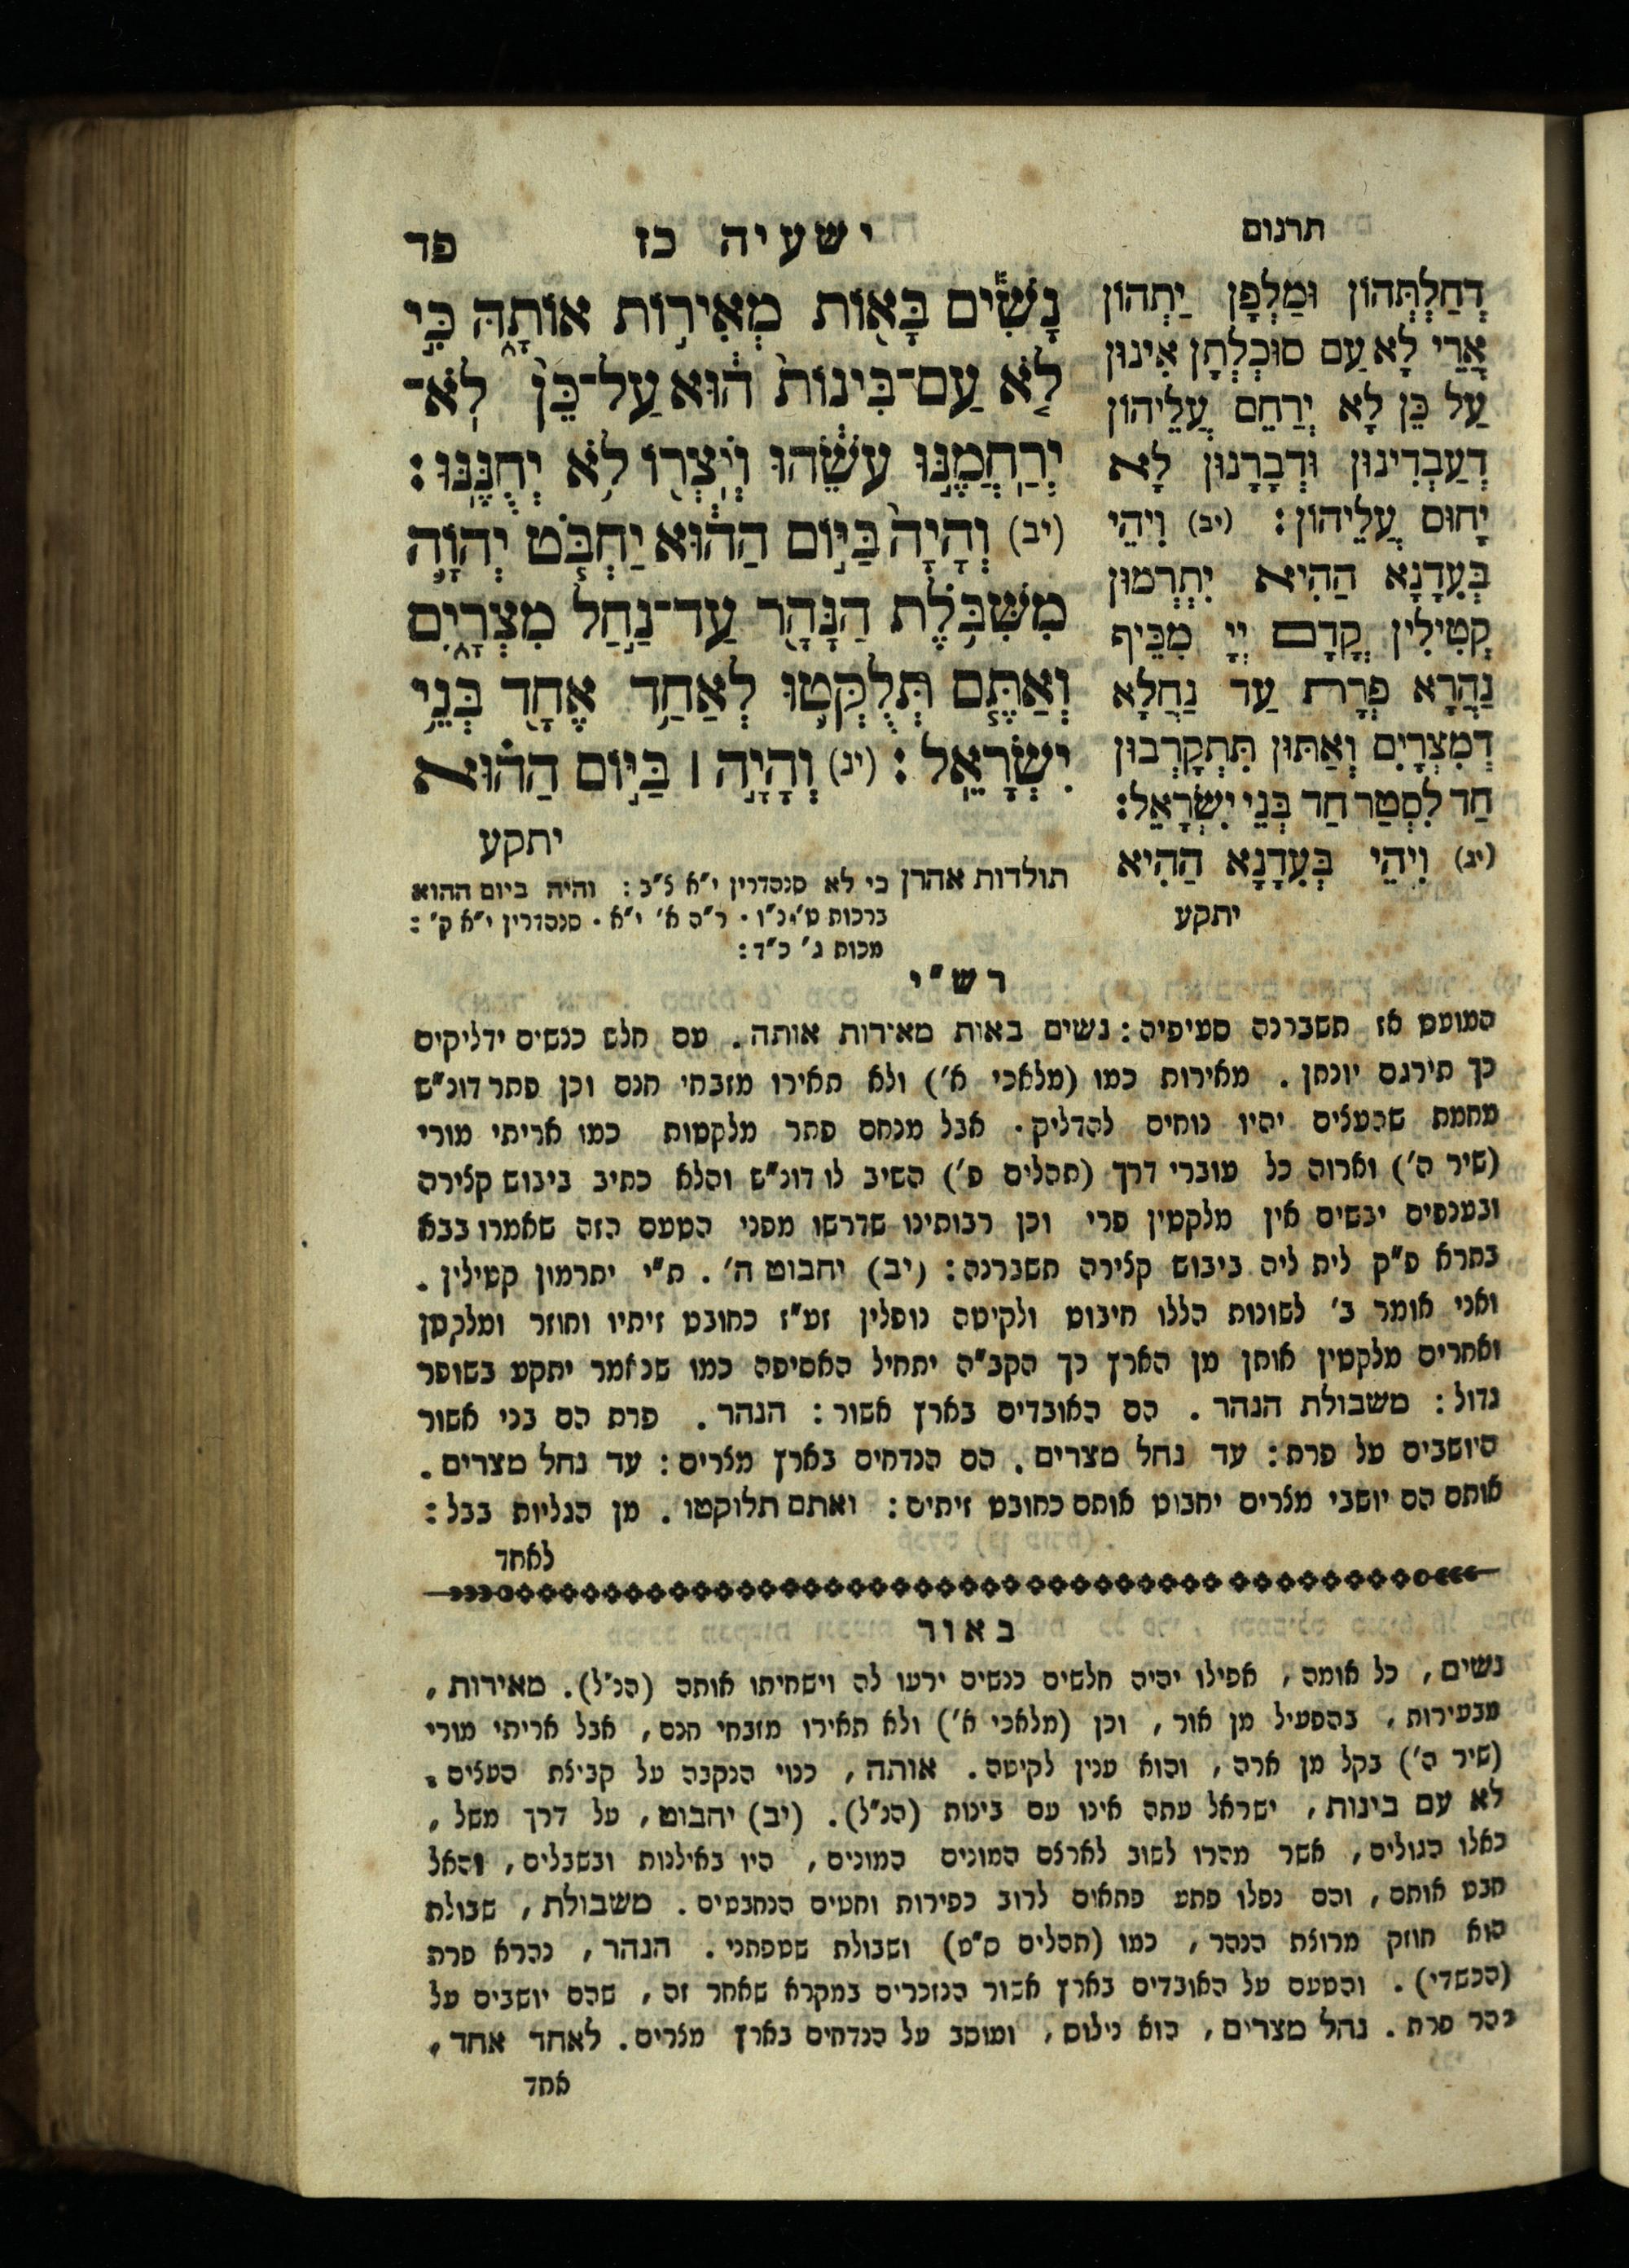 תרגום
ישעיה כז
פד
דְחַלְתְּהוֹן וּמַלְפָן יַתְהוֹן
אֲרֵי לָא עַם סוּכְלְתָן אִינוּן
עַל כֵּן לָא יְרַחֵם עֲלֵיהוֹן
דְעַבְדִינוּן וּדְבָרָנוּן לָא
יָחוּס עֲלֵיהוֹן: (יב) וִיהֵי
בְּעִדָנָא הַהִיא יִתְרְמוּן
קְטִילִין קֳדָם יְיָ מִכֵּיף
נַהֲרָא פְרָת עַד נַחֲלָא
דְמִצְרָיִם וְאַתּוּן תִּתְקָרְבוּן
חַד לִסְטַר חַד בְּנֵי יִשְׂרָאֵל:
(יג) וִיהֵי בְּעִדָנָא הַהִיא
יתקע
נָשִׁ֕ים בָּא֖וֹת מְאִיר֣וֹת אוֹתָ֑הּ כִּ֣י
לֹ֤א עַם־בִּינוֹת֙ ה֔וּא עַל־כֵּן֙ לֹֽא־
יְרַֽחֲמֶ֣נּוּ עֹשֵׂ֔הוּ וְיֹֽצְר֖וֹ לֹ֥א יְחֻנֶּֽנּוּ׃
(יב) וְהָיָה֙ בַּיּ֣וֹם הַה֔וּא יַחְבֹּ֧ט יְהֹוָ֛ה
מִשִּׁבֹּ֥לֶת הַנָּהָ֖ר עַד־נַ֣חַל מִצְרָ֑יִם
וְאַתֶּ֧ם תְּלֻקְּט֛וּ לְאַחַ֥ד אֶחָ֖ד בְּנֵ֥י
יִשְׂרָאֵֽל׃ (יג) וְהָיָ֣ה ׀ בַּיּ֣וֹם הַה֗וּא
יתקע
תולדות אהרן כי לא סנהדרין י"א נ"ב: והיה ביום ההוא
ברכות ט' נ"ו. ר"ה א' י"א. סנהדרין י"א ק':
מכות ג' כ"ד:
רש"י
המועט אז תשברנה סעיפיה: נשים באות מאירות אותה. עם חלש כנשים ידליקים
כך תירגם יונתן. מאירות כמו (מלאכי א') ולא תאירו מזבחי חנם וכן פתר דונ"ש
מחמת שהעצים יהיו נוחים להדליק. אבל מנחם פתר מלקטות כמו אריתי מורי
(שיר ה') וארוה כל עוברי דרך (תהלים פ') השיב לו דונ"ש והלא כתיב ביבוש קצירה
ובענפים יבשים אין מלקטין פרי וכן רבותינו שדרשו מפני הטעם הזה שאמרו בבא
בתרא פ"ק לית ליה ביבוש קצירה תשברנה: (יב) יחבוט ה'. ת"י יתרמון קטילין.
ואני אומר ב' לשונות הללו חיבוט ולקיטה נופלין זע"ז כחובט זיתיו וחוזר ומלקטן
ואחרים מלקטין אותן מן הארץ כך הקב"ה יתחיל האסיפה כמו שנאמר יתקע בשופר
גדול: משבולת הנהר. הם האובדים בארץ אשור: הנהר. פרת הם בני אשור
היושבים על פרת: עד נחל מצרים. הם הנדחים בארץ מצרים: עד נחל מצרים.
אותם הם יושבי מצרים יחבוט אותם כחובט זיתים: ואתם תלוקטו. מן הגליות בבל:
לאחד
באור
נשים, כל אומה, אפילו יהיה חלשים כנשים ירעו לה וישחיתו אותה (הנ"ל). מאירות,
מבעירות, בהפעיל מן אור, וכן (מלאכי א') ולא תאירו מזבחי חנם, אבל אריתי מורי
(שיר ה') בקל מן ארה, והוא ענין לקיטה. אותה, כנוי הנקבה על קבוצת העצים.
לא עם בינות, ישראל עתה אינו עם בינות (הנ"ל). (יב) יחבוט, על דרך משל,
כאלו הגולים, אשר מהרו לשוב לארצם המונים המונים, היו באילנות ובשבלים, והאל
חבט אותם, והם נפלו פתע פתאים לרוב כפירות וחטים הנחבטים. משבולת, שבולת
הוא חוזק מרוצת הנהר, כמו (תהלים ס"ט) ושבולת שטפתני. הנהר, נהרא פרת
(הכשדי). והטעם על האובדים בארץ אשור הנזכרים במקרא שאחר זה, שהם יושבים על
נהר פרת. נחל מצרים, הוא נילוס, ומוסב על הנדחים בארץ מצרים. לאחד אחד,
אחד